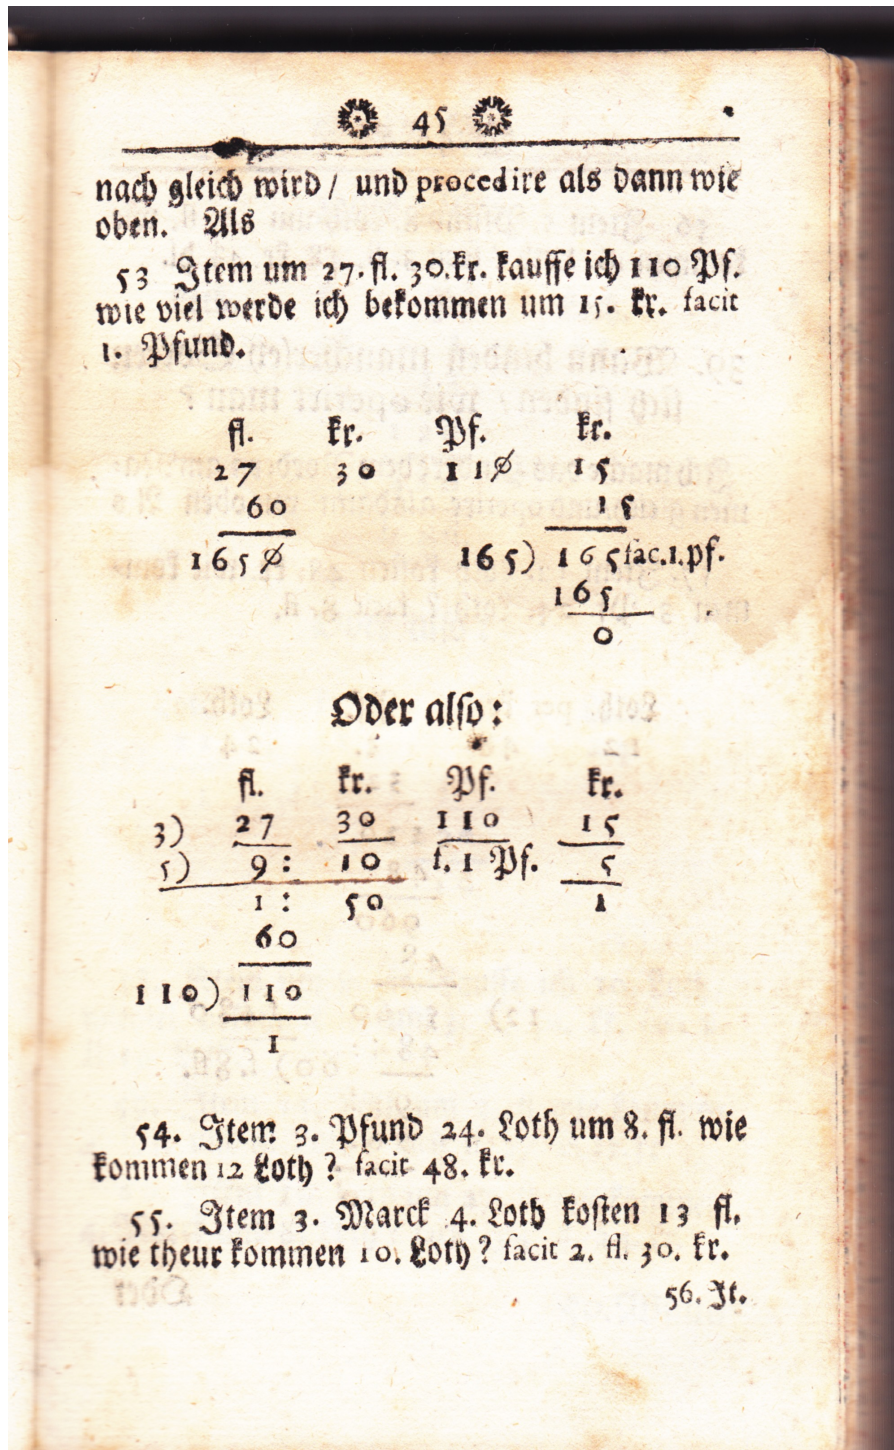 45
nach gleich wird / und procedire als dann wie
oben. Als
53 Item um 27. fl. 30. kr. kauffe ich 110 Pf.
wie viel werde ich bekommen um 15. kr. facit
1. Pfund.
fl. kr. Pf. kr.
27 30 110 15
60 15
1650 165) 165 fac. 1. pf.
165
0
Oder also:
fl. kr. Pf. kr.
3) 27 30 110 15
5) 9: 10 f. 1 Pf. 5
1: 50 1
60
110) 110
1
54. Item 3. Pfund 24. Loth um 8. fl. wie
kommen 12 Loth? facit 48. kr.
55. Item 3. Marck 4. Loth kosten 13 fl.
wie theur kommen 10. Loth? facit 2. fl. 30. kr.
56. It.